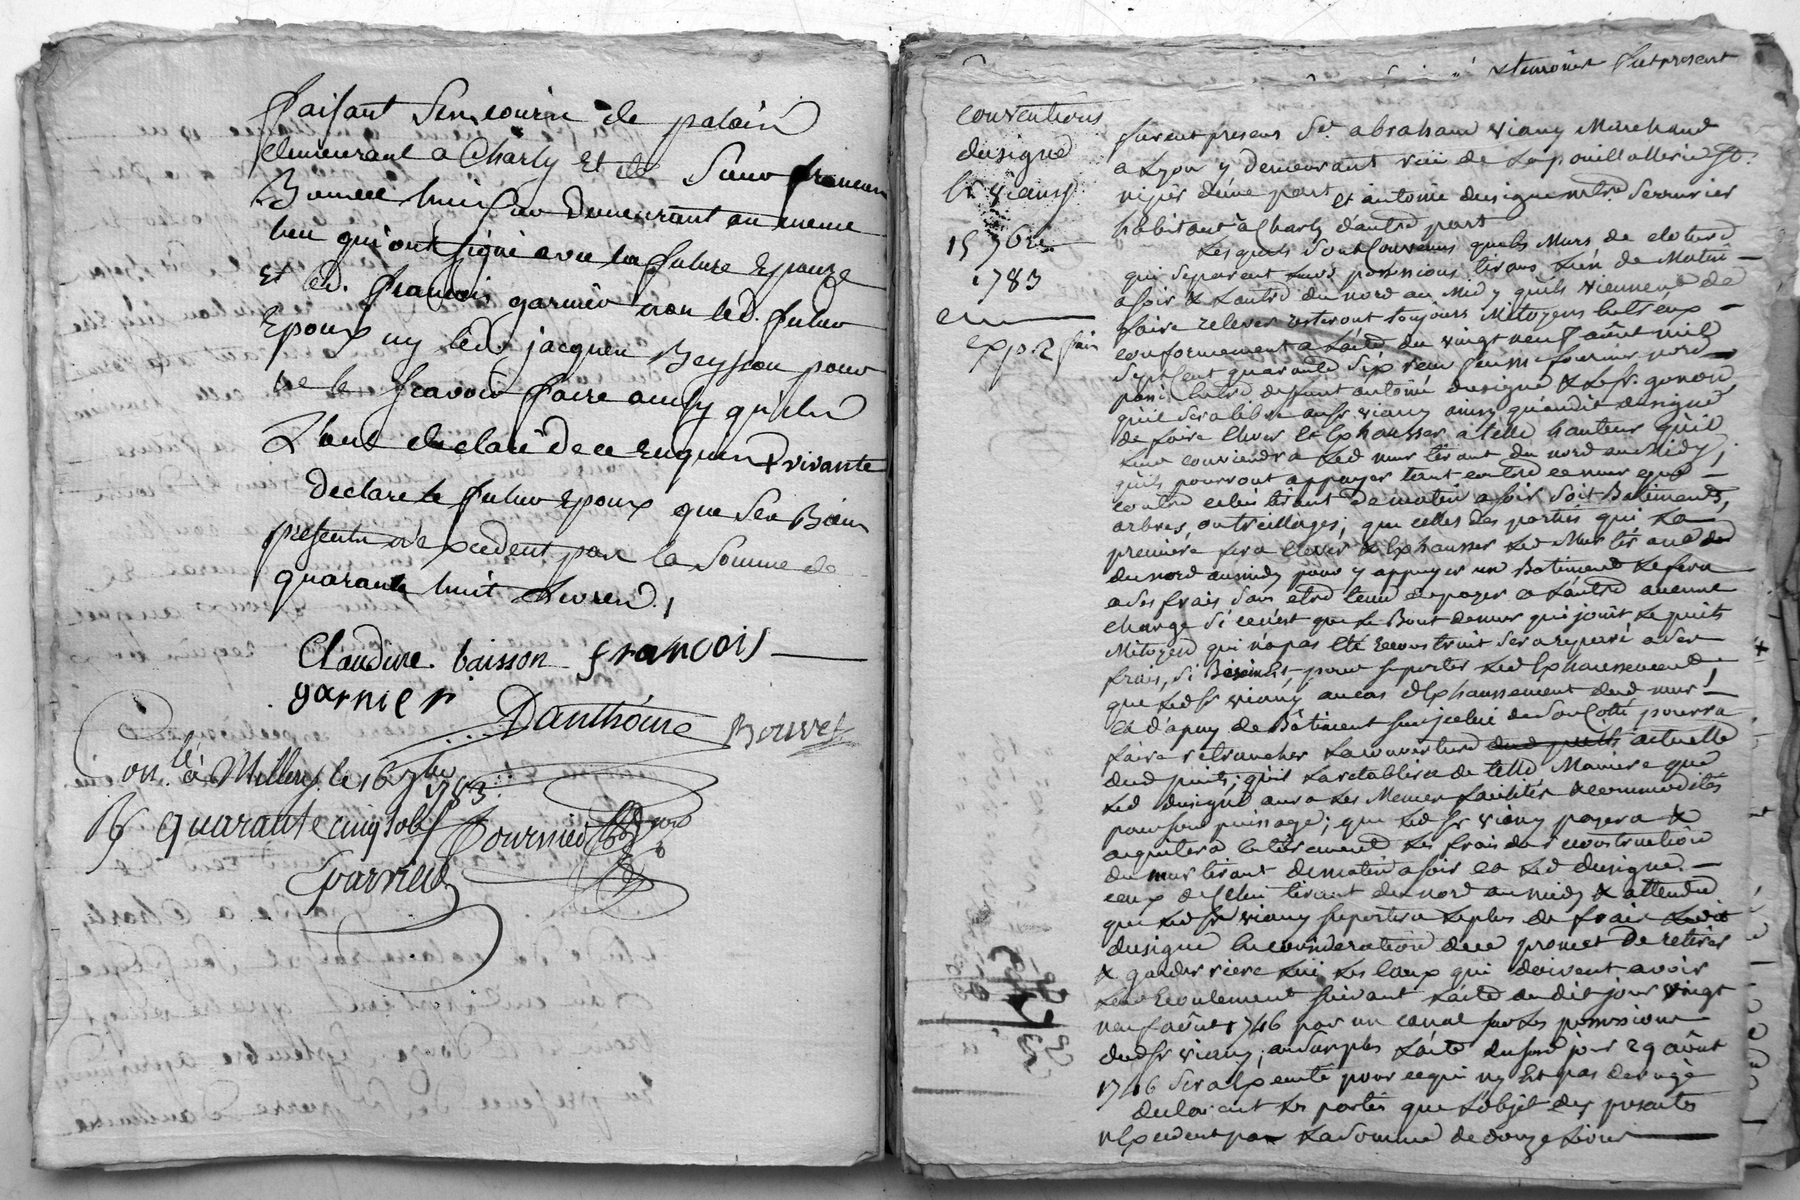 faisant Sencourir de palain
demeurant a Charly Et de Sieur francois
demeurant au meme
lieu qui ont signé avec la future Epouze
Et led. francois garnier non led. futur
Epoux ny led. jacques Beysson pour
ne le scavoir faire ainsy qu'ils
L'ont declaré de ce Enquis + vivante
Declare le futur Epoux que Ses Biens
presents n'excedent pas la Somme de
quarante huit Livres.
Claudine baisson francois
garnier
Danthoine Bouvet
Con.lé à Millery le 16 7bre 1783.
R quarante cinq Sols Fournier
Garnier
conventions
dusigne
et viany
15 7bre
1783
exp. 2 fois
furent presens Sr. abraham viany Marchand
a Lyon y demeurant rüe de La pouillallerie St.
nisier d'une part et antoine dusigne mtre. Serrurier
habitant à Charly d'autre part
Lesquels sont Convenus que les Murs de cloture
qui separent leurs possessions tirans L'un de Matin
a soir & L'autre du nord au Midy quils viennent de
faire relever resteront toujours Mitoyens entr'eux
conformement a L'acte du vingt neuf août mil
Sept Cent quarante Six reçu par Me fournier
passé Entre deffunt antoine dusigne & Le Sr. gonon
qu'il Sera libre au Sr viany ainsy qu'audit dusigne
de faire Elever et Exhausser a telle hauteur qu'il
Leur conviendra Led mur tirant du nord au Midy;
qu'ils pourront appuyer tant contre ce mur que
contre celui tirant de matin a soir soit Batiments,
arbres, ou treillages; que celles des parties qui La
premiere fera Elever & Exhausser Led Mur tirant
du nord au midy pour y appuyer un Batiment Le fera
a ses frais sans etre tenu de payer a L'autre aucune
charge si ce n'est que le Bout de mur qui joint Le puits
Mitoyen qui n'a pas été reconstruit sera reparé a ses
frais, si Besoin est, pour suporter Led Exhaussement
que Led Sr viany au cas d'Exhaussement dud mur
et d'apuy de Bâtiment sur icelui de Son Coté pourra
faire retrancher La couverture actuelle
dud puits; qu'il La retablira de telle Maniere que
Led dusigne aura Les Memes facilités & commodités
pour son puisage; que Led Sr viany payera &
aquitera Entierement Les frais de reconstruction
du mur tirant de matin a soir et Led dusigne
ceux de Celui tirant du nord au midy & attendu
que Led Sr viany suportera Le plus de frais Ledit
dusigne En consideration de ce promet De retirer
& garder riere Lui Les Eaux qui doivent avoir
Leur Ecoulement suivant L'acte dudit jour vingt
neuf août 1746 par un canal sur Les possessions
dud Sr viany; au surplus L'acte dususd jour 29 août
1746 sera Executé pour ce qui n'y Est pas derogé
declarant Les parties que L'objet des presentes
n'Excedent pas La Somme de douze Livres